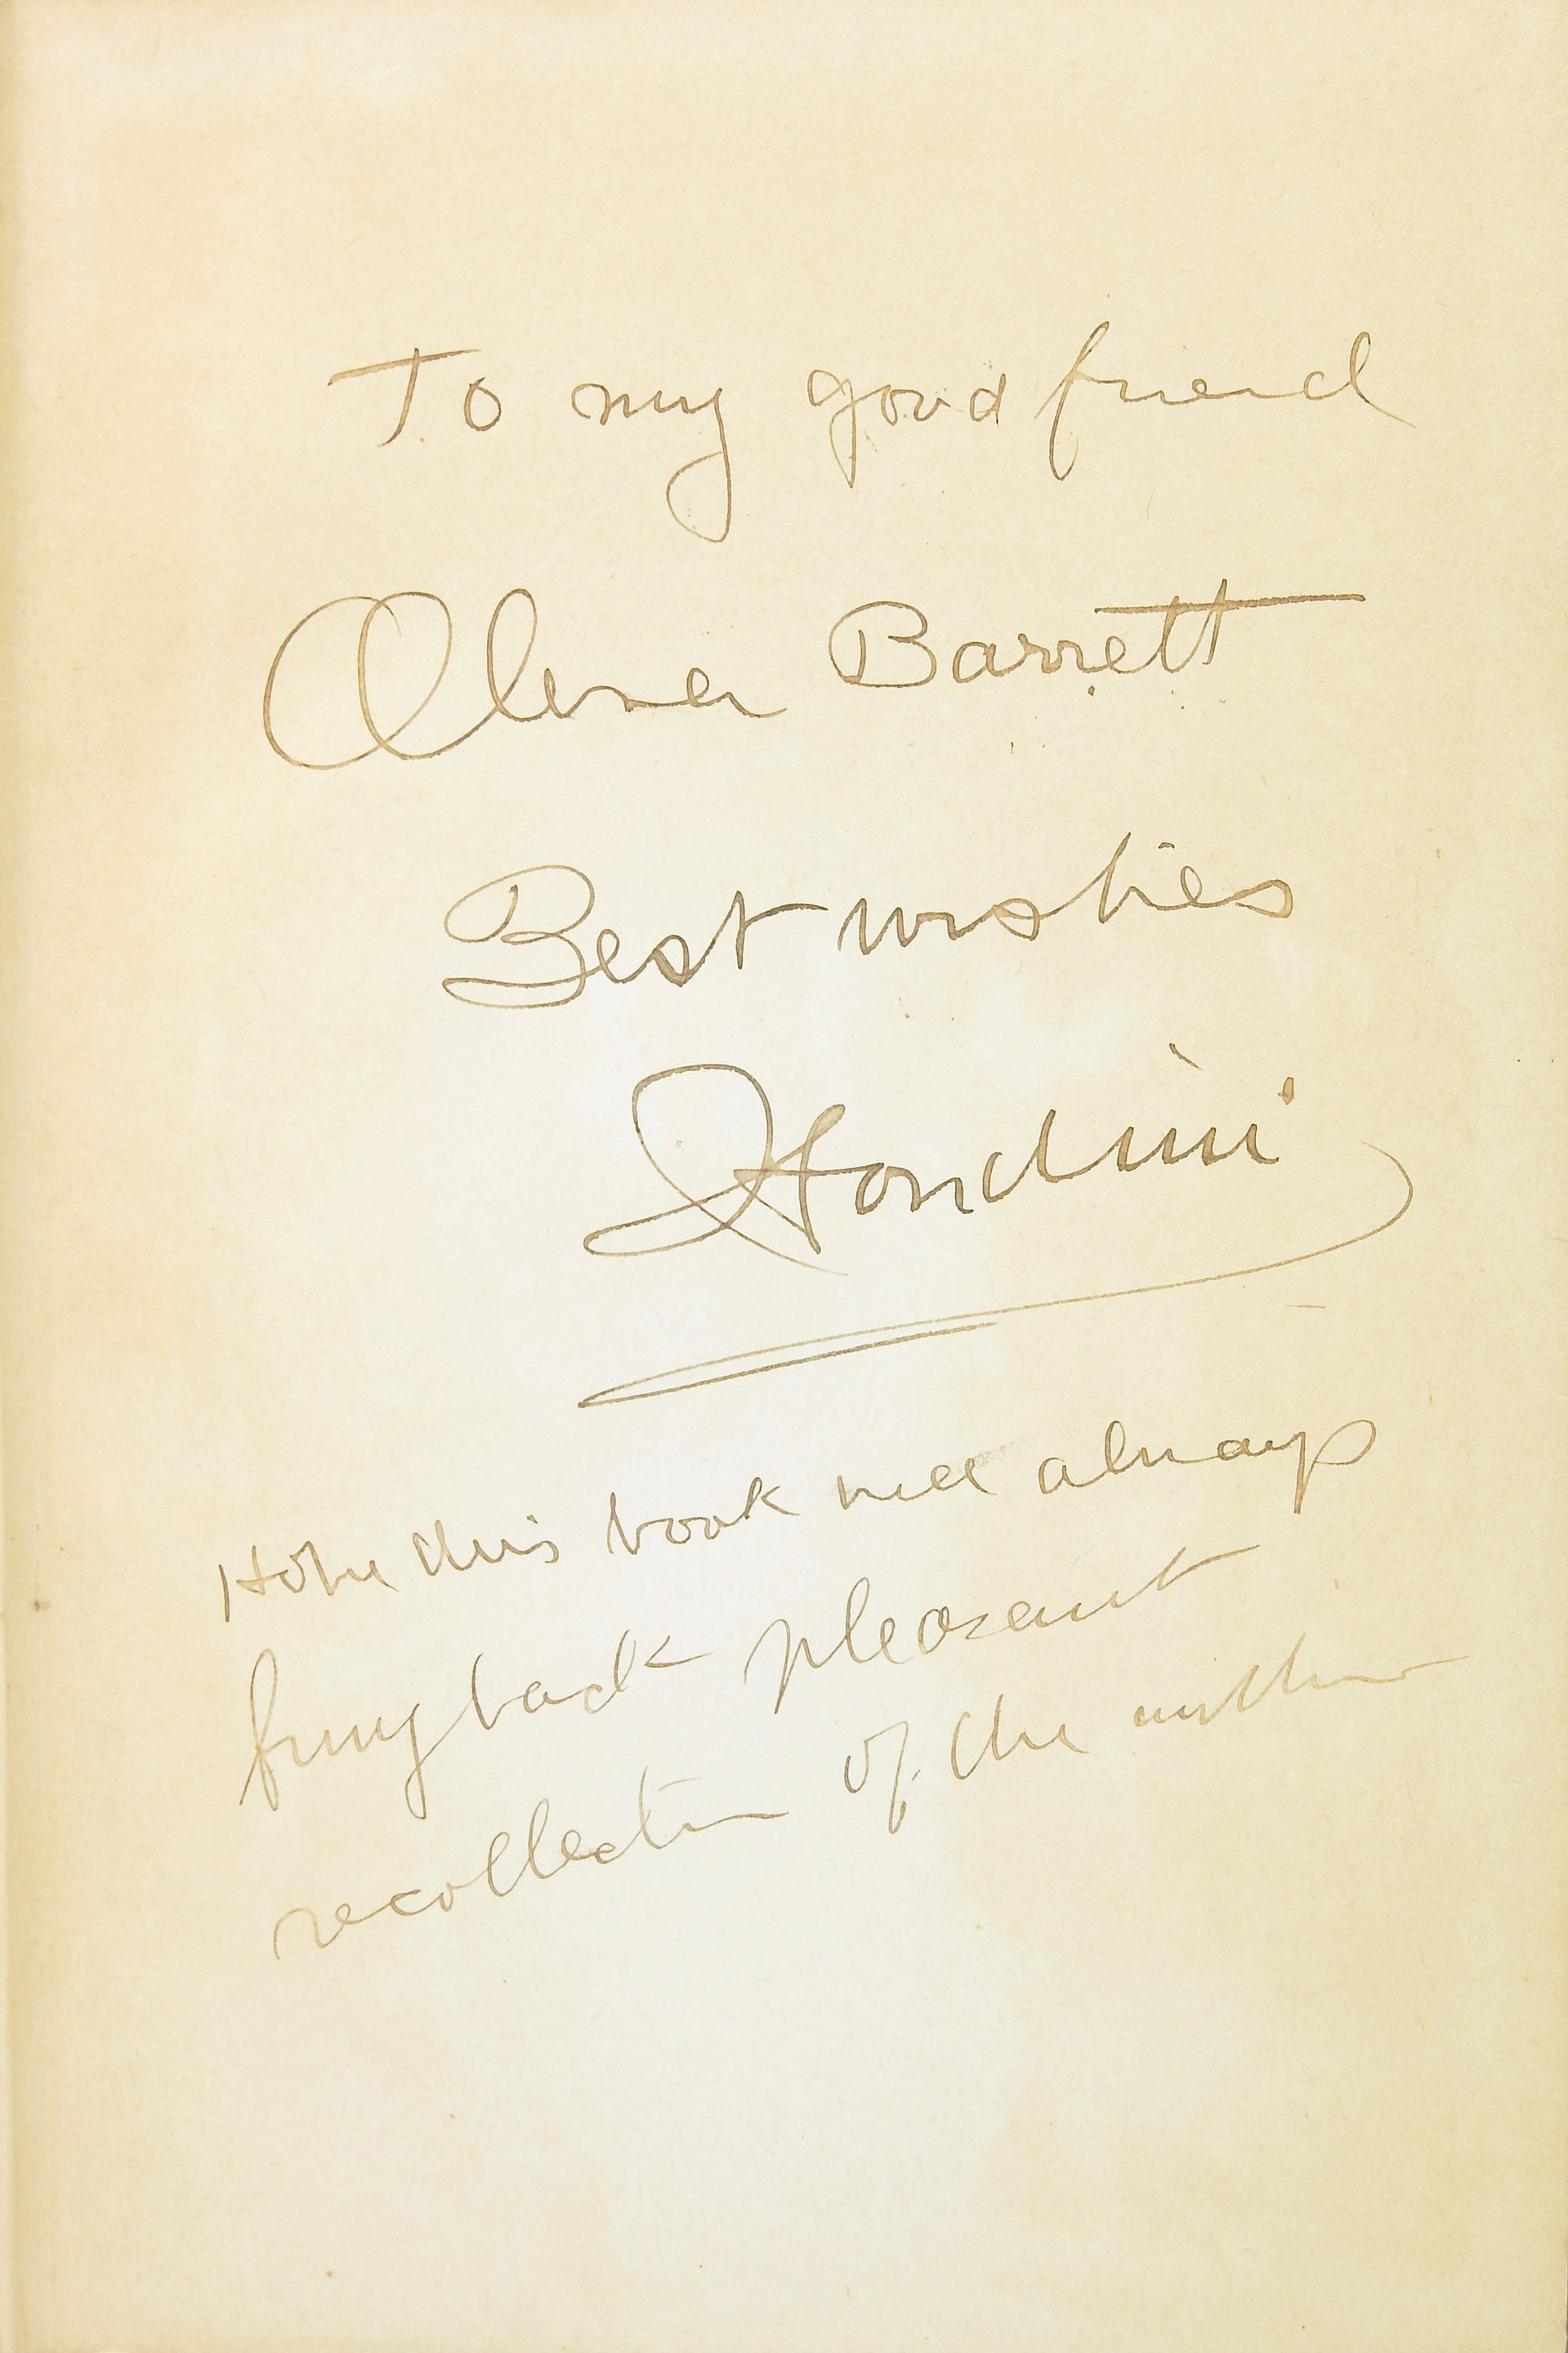 To my good friend
Oliver Barrett
Best wishes
Houdini
Hope this book will always
bring back pleasant
recollection of the author